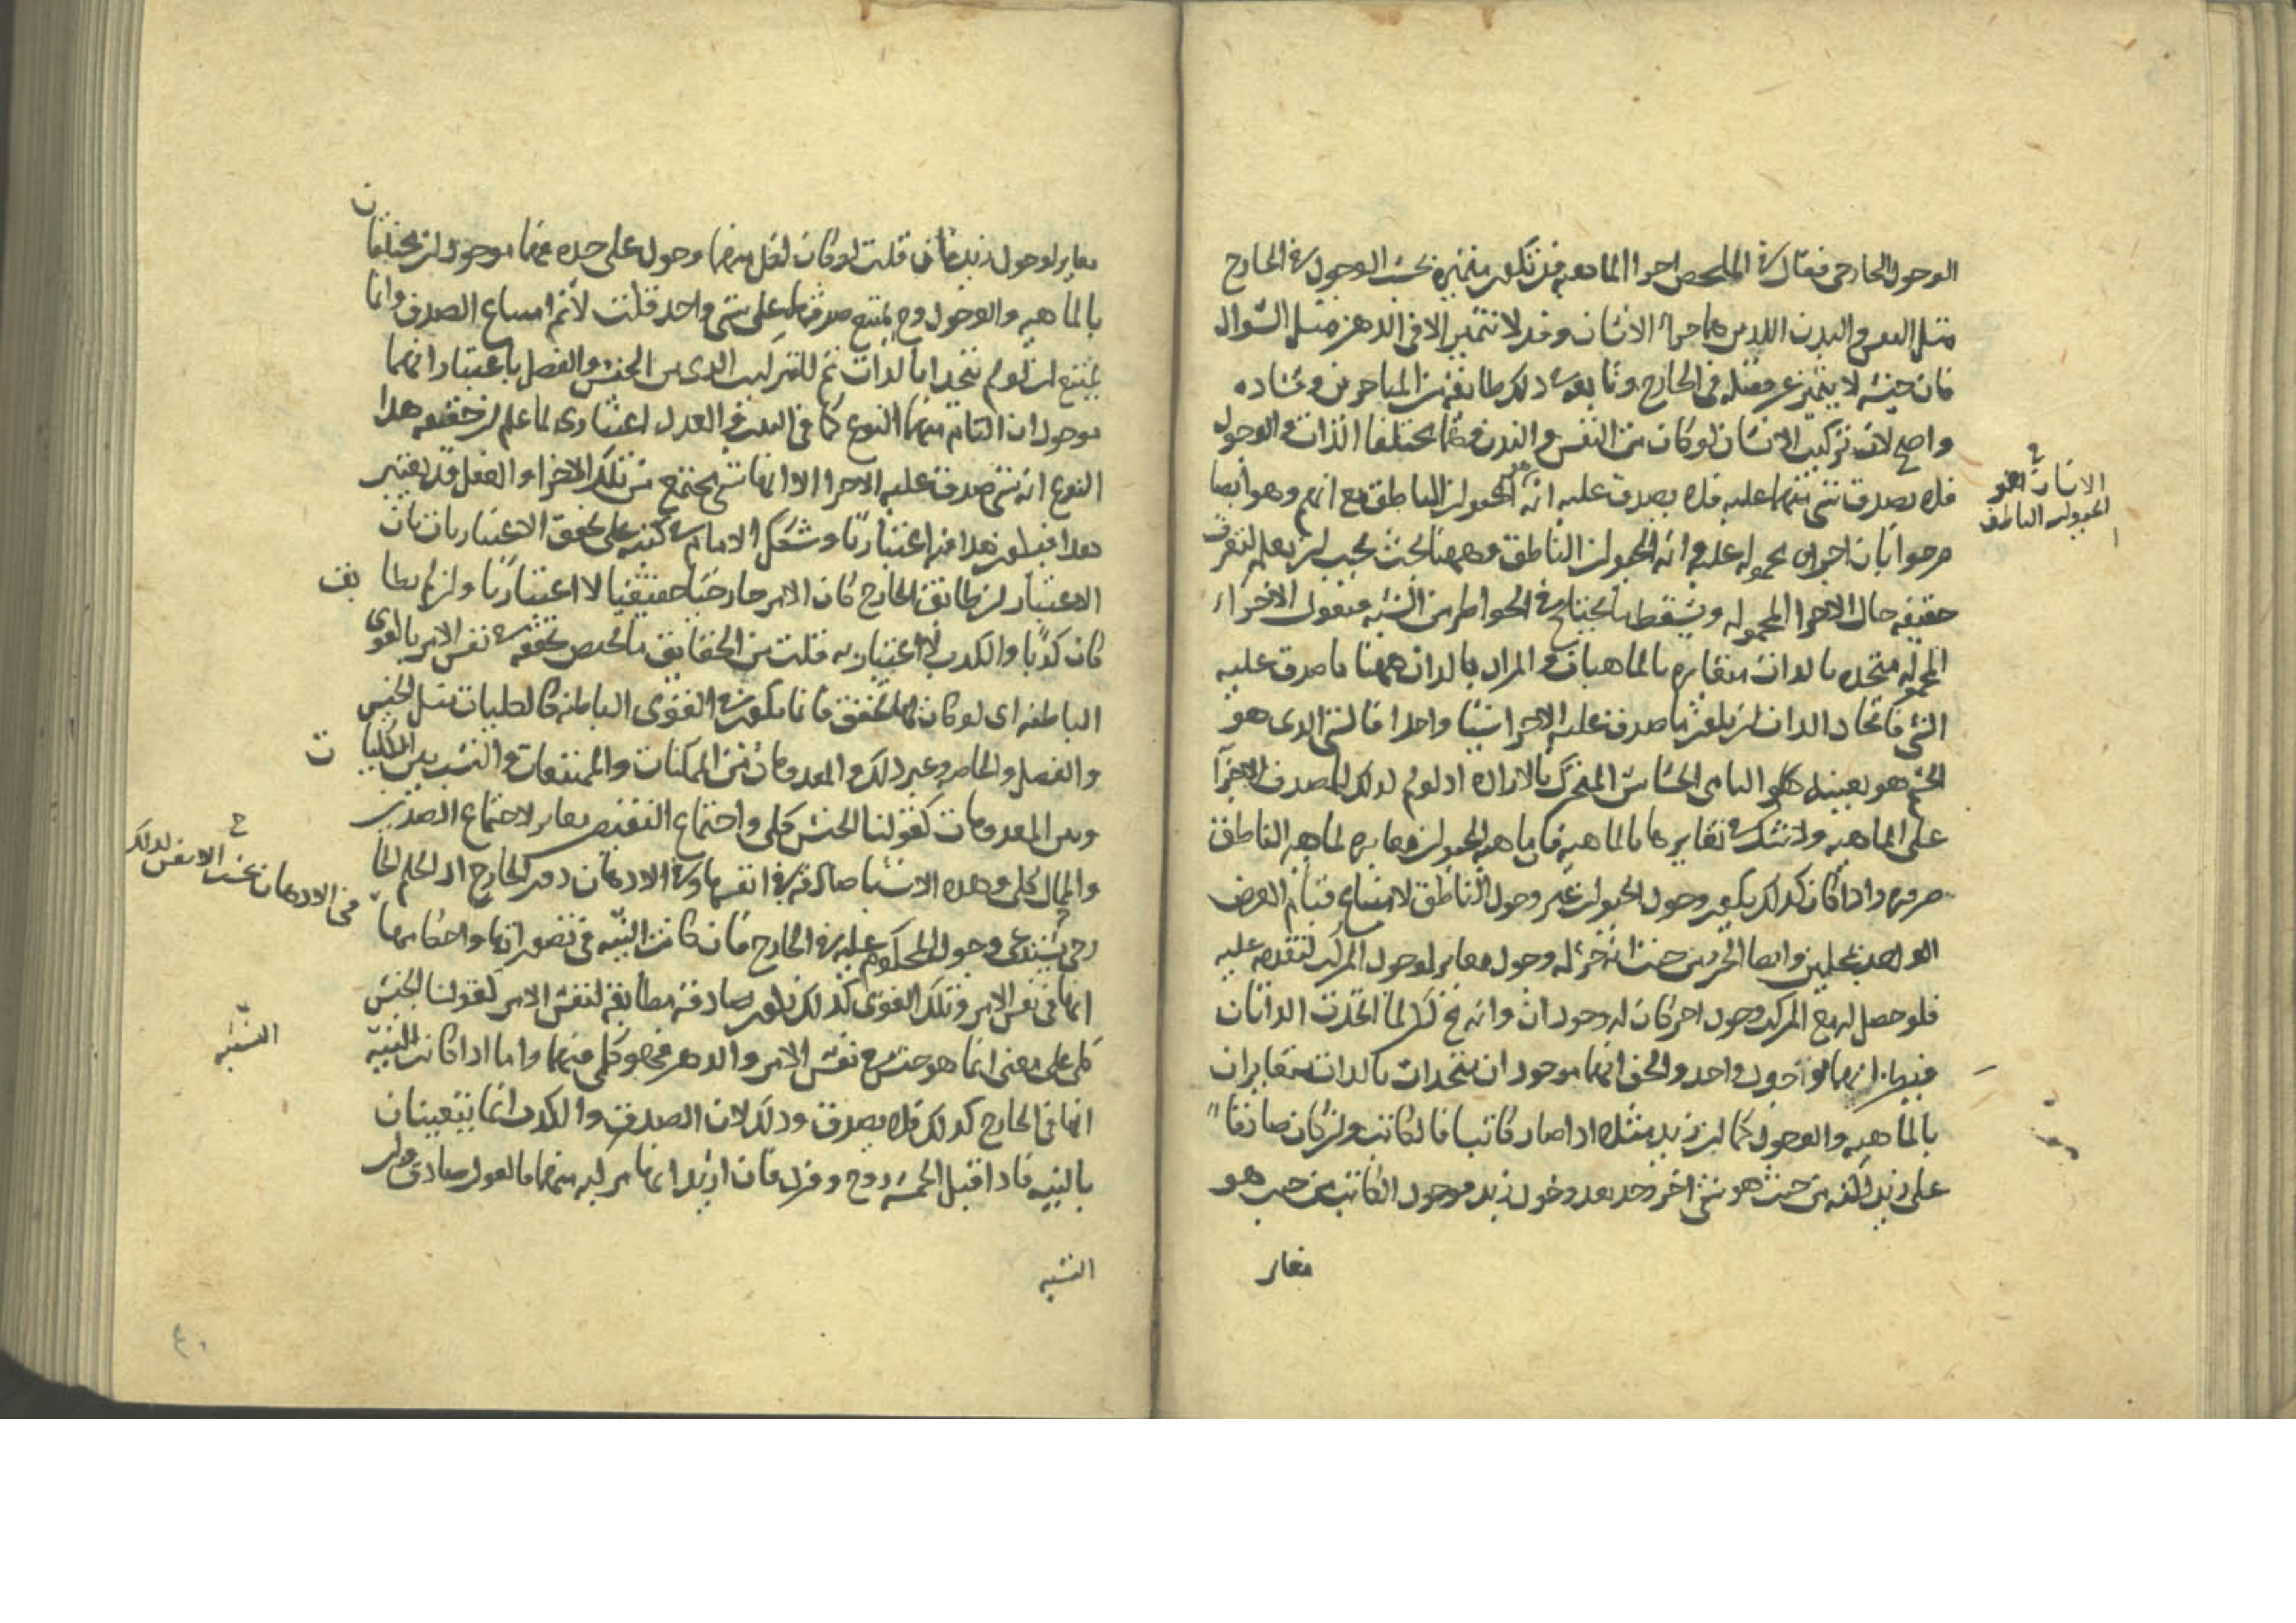 الوجود الخارجى فقال فى الملخص اجزا الماهيه قد تكون متميزه بحسب الوجود فى الخارج
مثل النفس والبدن اللذين هما جزءا الانسان وقد لا تتميز الا فى الذهن مثل السواد
فان جنسه لا يتميز عن فصله فى الخارج وتابعه فى ذلك طائفة من المتاخرين وفساده
واضح لان تركيب الانسان لو كان من النفس والبدن وهما مختلفا الذات والوجود
فلا يصدق شى منهما عليه فلا يصدق عليه انه الحيوان الناطق مع انهم وهو ايضا
صرحوا بان اجزاه محموله عليه وانه الحيوان الناطق وههنا بحث يجب ان يعلم لتعرف
حقيقه حال الاجزا المحموله ويسقط ما يختلج فى الخواطر من الشبه فنقول الاجزاء
المحموله متحده بالذات متغايره بالماهيات والمراد بالذات ههنا ما صدق عليه
الشى فاتحاد الذات ان يكون ما صدق عليه الاجزا شيئا واحدا فالشى الذى هو
الجسم هو بعينه هو النامى الحساس المتحرك بالاراده اذ لو لم لذلك لما صدق الاجزآ
على الماهيه ولا شك فى تغايرها بالماهيه فان ماهيه الحيوان مغايره لماهيه الناطق
ضروره واذا كان كذلك يكون وجود الحيوان غير وجود الناطق لامتناع قيام العرض
الواحد بمحلين وايضا الجزء من حيث انه جزء له وجود مغاير لوجود المركب لتقدمه عليه
فلو حصل له مع المركب وجود اخر كان له وجودان وانه مح لما اتحدت الذاتان
فيها انهما لو وجود واحد والحق انهما موجودان متحدان بالذات متغايران
بالماهيه والوجود كما ان زيد مثلا اذا صار كاتبا فالكاتب وان كان صادقا
على زيد لكنه من حيث هو شى اخر وجد بعد وجود زيد فوجود الكاتب من حيث هو
مغاير
الانسان هو
الحيوان الناطق
مغاير لوجود زيد فان قلت لو كان لكل منهما وجود على حده فهما موجودان مختلفان
بالماهيه والوجود وح يمتنع صدقهما على شى واحد قلت لا نم امتناع الصدق وانما
يمتنع ان لو لم تتحدا بالذات نعم للتركيب الذى من الجنس والفصل باعتبار انهما
موجودان التام منهما النوع كما فى البدن والعدل اعتبارى لما علم ان حقيقه هذا
النوع انه شى صدق عليه الاجزا الا انها شى مجتمع من تلك الاجزا والعقل قد يعتبر
هذا فيكون هذا فيه اعتباريا وشكل الامام فى كتبه على تحقق الاعتباريات بان
الاعتبار ان طابق الخارج كان الامر خارجيا حقيقيا لا اعتباريا وان لم يطابق
كان كذبا والكذب لا اعتبار به قلت من الحقايق ما يختص تحققه فى نفس الامر بالقوى
الباطنه اى لو كان لها تحقق فانما يكون فى القوى الباطنه كالكليات مثل الجنس
والفصل والخاصه وغير ذلك والمعدومات من الممكنات والممتنعات والنسب بين الكليات
وبين المعدومات كقولنا الجنس كلى واجتماع النقيضين مغاير لاجتماع الضدين
والمحال كلى وهذه الاشيا صادقه فى انفسها وفى الاذهان دون الخارج اذ الحكم الخا
رجى يستدعى وجود المحكوم عليه فى الخارج فان كانت النسبه فى تصوراتها واحكامها
انها فى نفس الامر وتلك القوى كذلك يكون صادقه مطابقه لنفس الامر كقولنا الجنس
كلى على معنى انما هو جنس مع نفس الامر والذهن فهو كلى منهما واما اذا كانت النسبه
انها فى الخارج كذلك فلا يصدق وذلك لان الصدق والكذب انما يتعينان
بالنسبه فاذا قيل الخمسه زوج وفرد فان اريد انها مركبه منهما فالقول صادق وان
النسبه
فى الاذهان بحسب الانفس لذلك
النسبه
٤٠